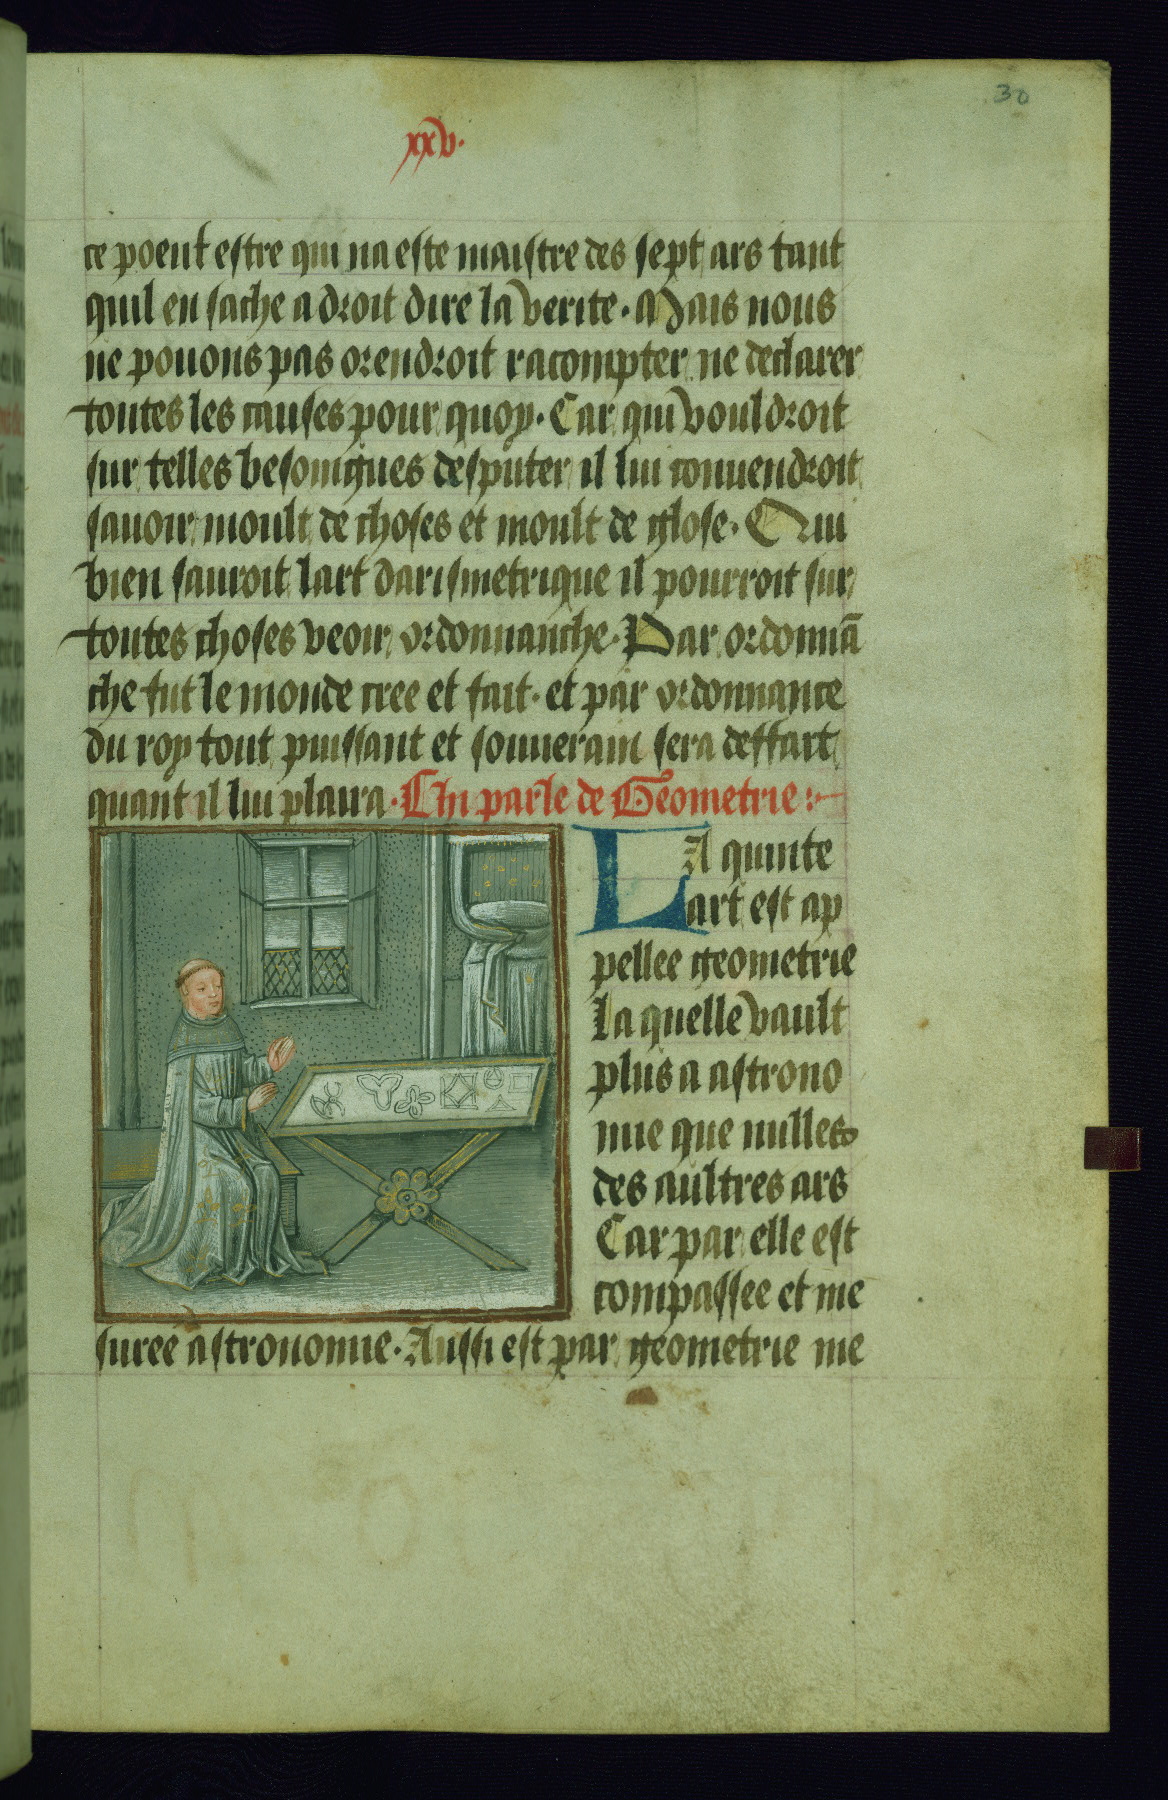 30
xxv.
ce poeut estre qui na este maistre des sept ars tant
quil en sache a droit dire la verite. Mais nous
ne pouons pas orendroit racompter ne declarer
toutes les causes pour quoy. Car qui vouldroit
sur telles besoingnes desputer il lui conuendroit
sauoir moult de choses et moult de glose. Qui
bien sauroit lart darismetrique il pourroit sur
toutes choses veoir ordonnanche. Par ordonnā
che fut le monde cree et fait. et par ordonnance
du roy tout puissant et souuerain sera deffait
quant il lui plaira. Chi parle de Geometrie:
LA quinte
art est ap
pellee geometrie
La quelle vault
plus a astrono
mie que nulles
des aultres ars
Car par elle est
compassee et me
suree astronomie. Aussi est par geometrie me